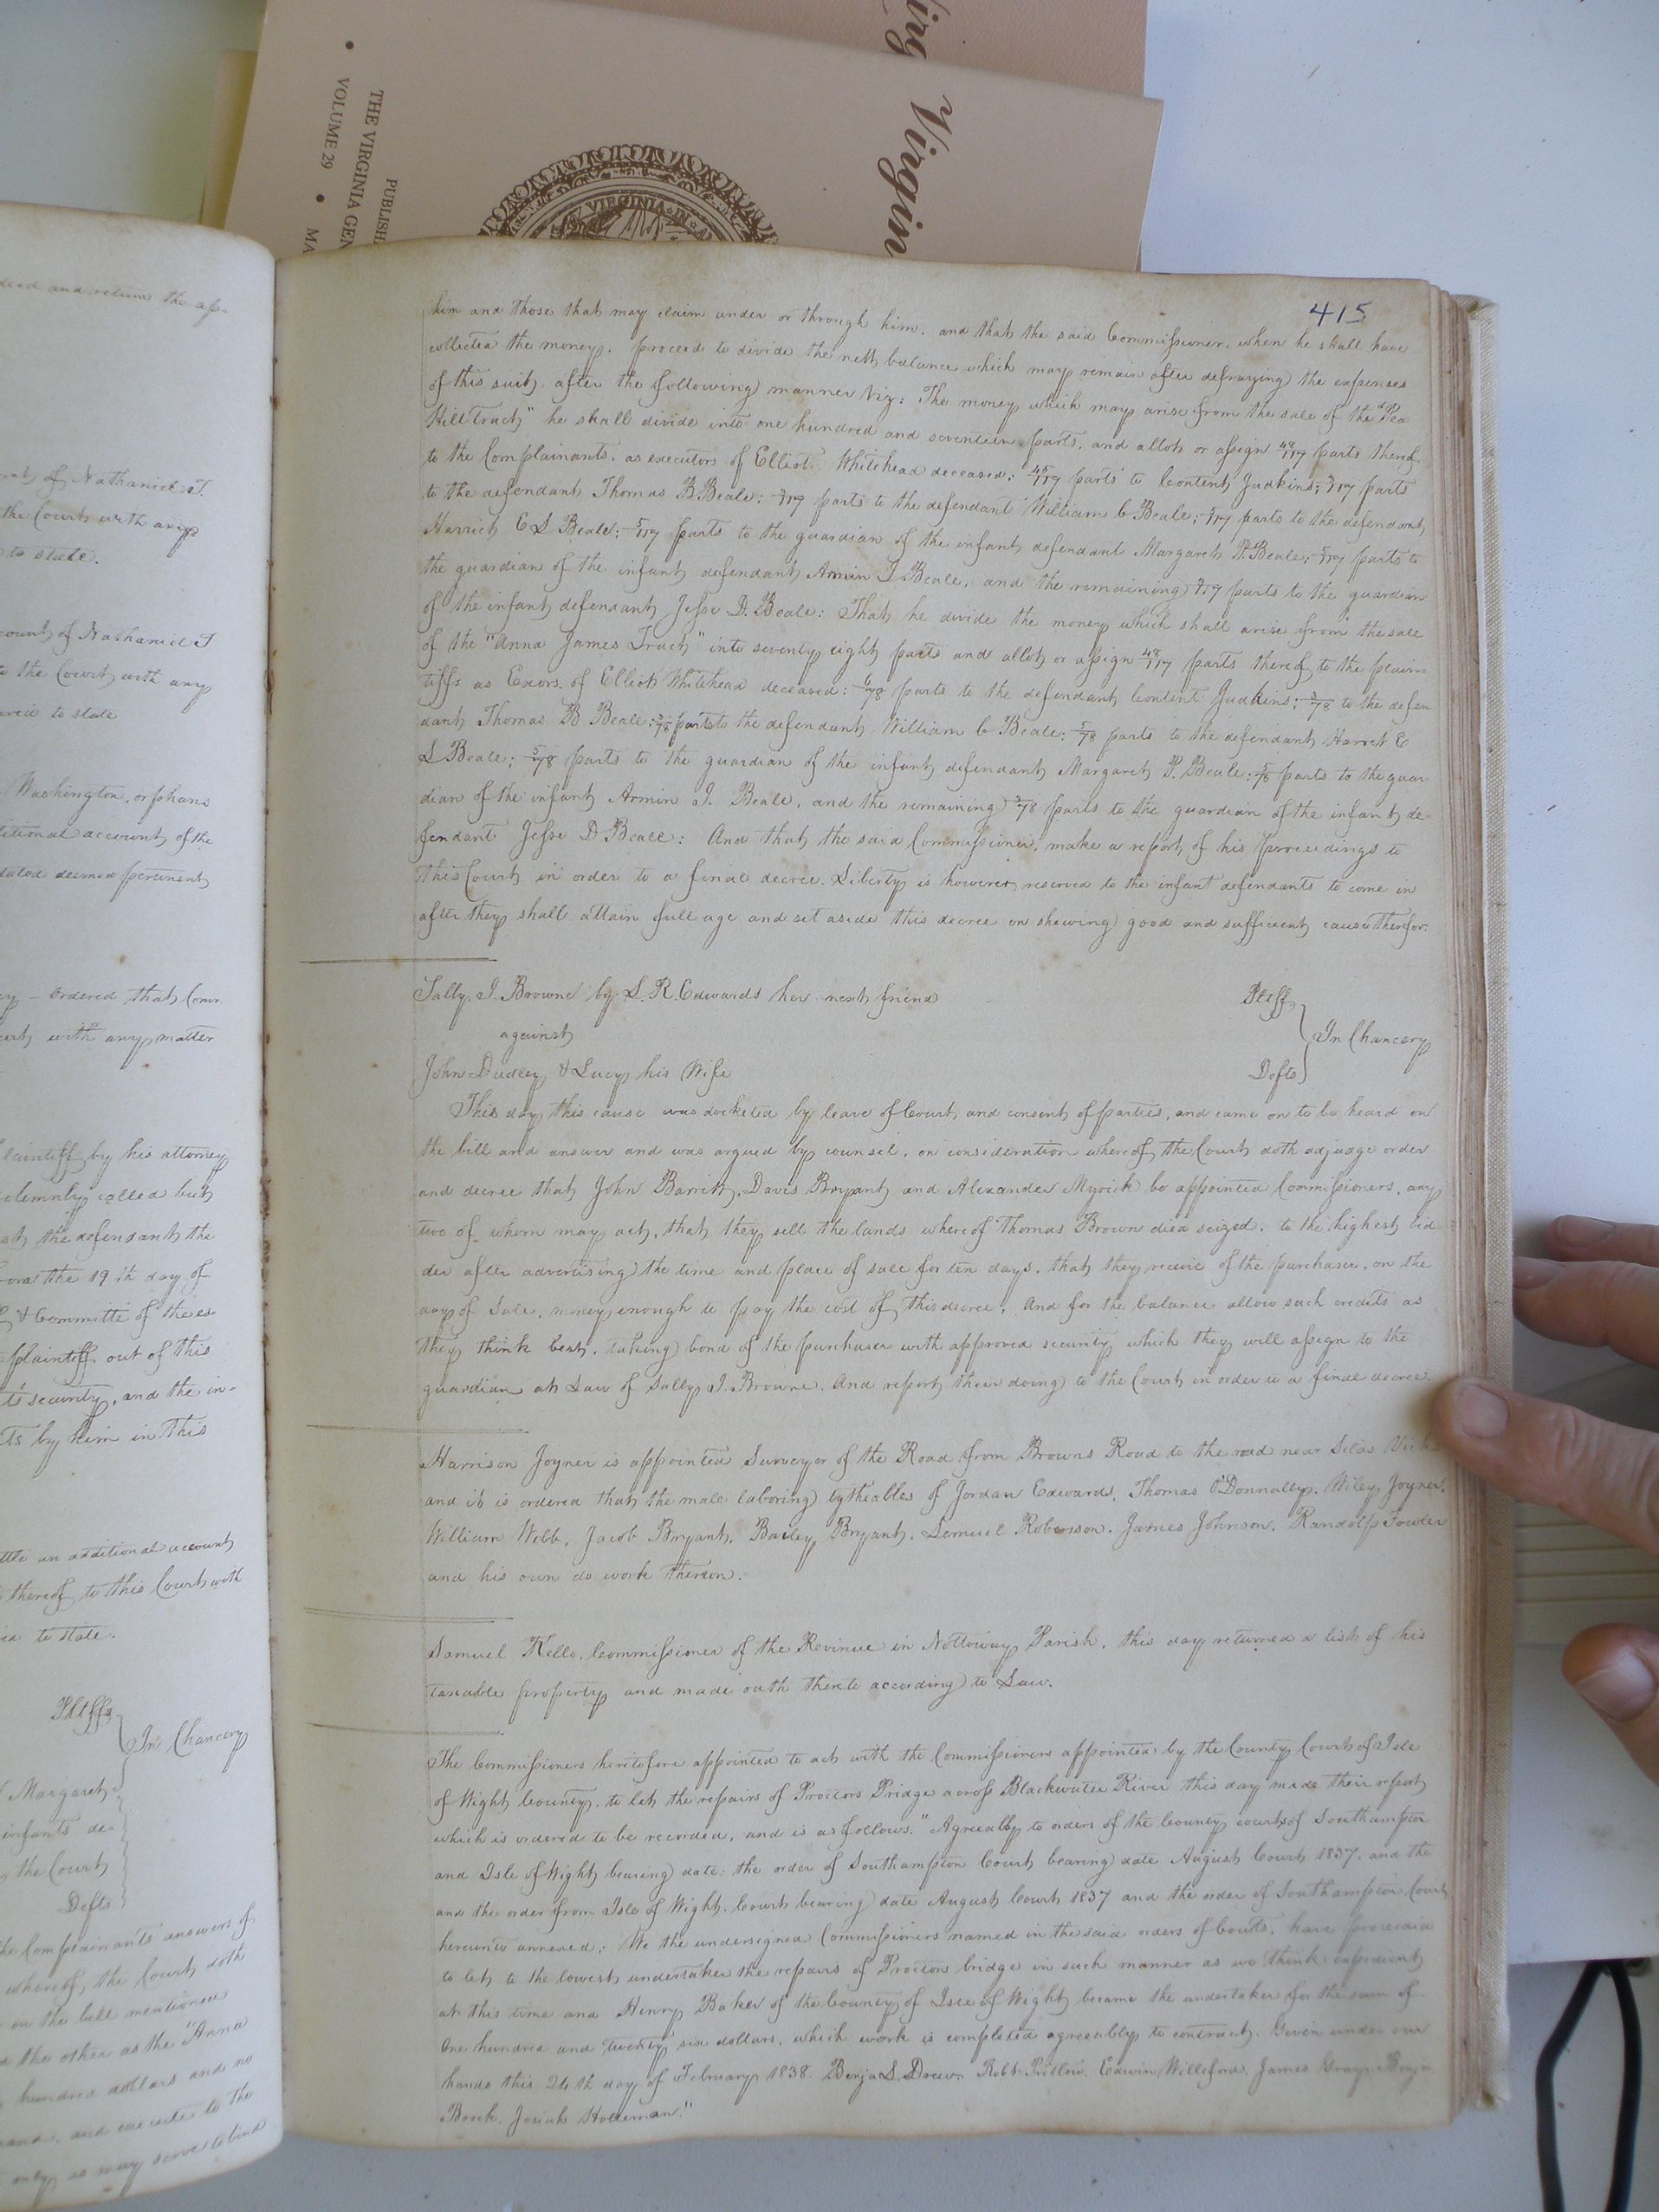 Virgin
PUBLISH
THE VIRGINIA GEN
VOLUME 29 • MA
VIRGINIA IN A
deed and return the ap-
of Nathaniel T.
the Court with any
to state.
count of Nathaniel T
the Court with any
to state
Washington, orphans
account of the
stated deemed pertinent
ordered that Comr
with any matter
plaintiff by his attorney
solemnly called but
the defendant the
the 19th day of
& Committe of the es
plaintiff out of this
security, and the in-
by him in this
an additional account
thereof to this Court with
to state.
Pltffs
In Chancery
Margaret
infants de
the Court
Defts
the Complainants answers of
whereof, the Court doth
on the bill mentioned
the other as the "Anna
hundred dollars and no
and execute to the
only as may serve to bind
415
him and those that may claim under or through him. and that the said Commissioner. when he shall have
collected the money. proceed to divide the nett balance which may remain after defraying the expenses
of this suit. after the following manner Viz: The money which may arise from the sale of the "Pea
Hill Tract" he shall divide into one hundred and seventeen parts. and allot or assign 48/117 parts thereof
to the Complainants. as executors of Elliot Whitehead deceased: parts to Content Judkins; parts
to the defendant Thomas B. Beale; parts to the defendant William C Beale; parts to the defendant
Harriet E S Beale; parts to the guardian of the infant defendant Margaret P. Beale; parts to
the guardian of the infant defendant Armin J. Beale, and the remaining parts to the guardian
of the infant defendant Jesse D. Beale: That he divide the money which shall arise from the sale
of the "Anna James Tract" into seventy eight parts and allot or assign 48/117 parts thereof to the plain-
tiffs as Exors. of Elliot Whitehead deceased: 6/78 parts to the defendant Content Judkins; to the defen
dant Thomas B Beale; parts to the defendant William C Beale; 5/78 parts to the defendant Harret E
S Beale; 5/78 parts to the guardian of the infant defendant Margaret P. Beale; parts to the guar-
dian of the infant Armin J. Beale, and the remaining parts to the guardian of the infant de-
fendant Jesse D Beale: And that the said Commissioner, make a report of his proceedings to
this Court in order to a final decree. Liberty is however reserved to the infant defendants to come in
after they shall attain full age and set aside this decree on shewing good and sufficient cause therefor.
Sally. J. Browne by S. R. Edwards her next friend Pltff
against In Chancery
John Dudley & Lucy his Wife Defts
This day this cause was docketed by leave of Court and consent of parties, and came on to be heard on
the bill and answer and was argued by counsel. on consideration whereof the Court doth adjudge order
and decree that John Barrett, Davis Bryant and Alexander Myrick be appointed Commissioners, any
two of whom may act, that they sell the lands whereof Thomas Brown died seized. to the highest bid
der after advertising the time and place of sale for ten days. that they receive of the purchaser, on the
day of Sale, money enough to pay the cost of this decree. And for the balance allow such credits as
they think best. taking bond of the purchaser with approved security which they will assign to the
guardian at Law of Sally J. Browne. And report their doing to the Court in order to a final decree.
Harrison Joyner is appointed Surveyor of the Road from Browns Road to the road near Silas
and it is ordered that the male laboring tytheables of Jordan Edwards, Thomas O'Donnally, Wiley Joyner,
William Webb, Jacob Bryant, Bailey Bryant. Lemuel Roberson. James Johnson. Randolp Fowler
and his own do work thereon.
Samuel Kello. Commissioner of the Revinue in Nottoway Parish. this day returned a list of his
taxable property and made oath thereto according to Law.
The Commissioners heretofore appointed to act with the Commissioners appointed by the County Court of Isle
of Wight County. to let the repairs of Proctors Bridge across Blackwater River this day made their report
which is ordered to be recorded, and is as follows. "Agreeably to orders of the County courts of Southampton
and Isle of Wight bearing date: the order of Southampton Court bearing date August Court 1837. and the
and the order from Isle of Wight. Court bearing date August Court 1837 and the order of Southampton Court
hereunto annexed; We the undersigned Commissioners named in the said orders of Courts, have proceeded
to let to the lowest undertaker the repairs of Proctors bridge in such manner as we think expedient
at this time and Henry Baker of the County of Isle of Wight became the undertaker for the sum of
One hundred and twenty six dollars. which work is completed agreeably to contract. Given under our
hands this 24th day of February 1838. Benja S. Drew. Robt Pretlow. Edwin Williford. James Gray. Benja
Josiah Holleman."